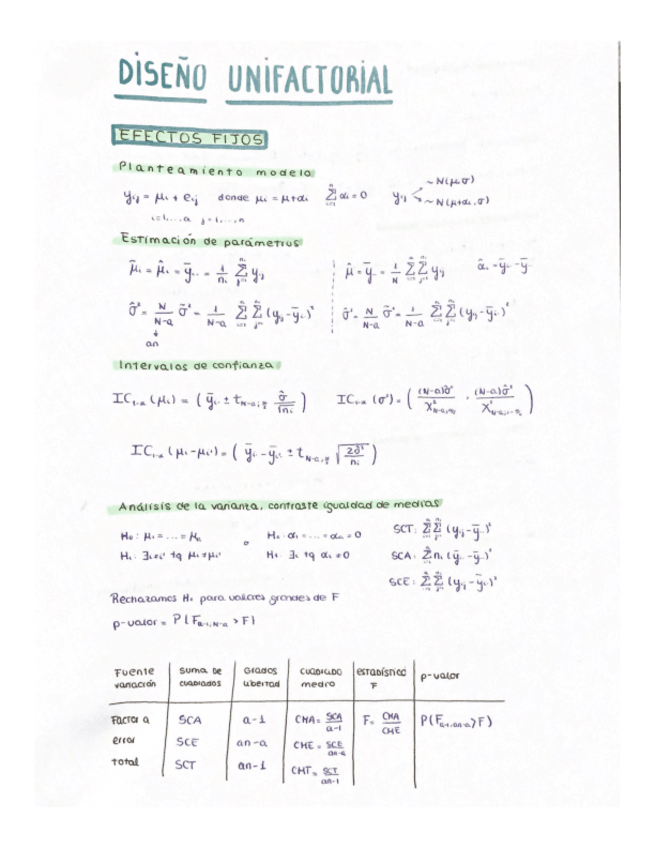 DISEÑO UNIFACTORIAL
EFECTOS FIJOS
Planteamiento modelo
yᵢⱼ = μᵢ + eᵢⱼ donde μᵢ = μ+αᵢ Σαᵢ = 0 yᵢⱼ ~N(μ,σ)
~N(μ+αᵢ,σ)
i=1,...a j=1,...n
Estimación de parámetros
μ̃ᵢ = μ̂ᵢ = ȳᵢ. = 1/nᵢ Σ yᵢⱼ μ̂ = ȳ.. = 1/N ΣΣ yᵢⱼ α̂ᵢ = ȳᵢ. - ȳ..
σ̂² = N/(N-a) σ̃² = 1/(N-a) ΣΣ (yᵢⱼ - ȳᵢ.)² σ̂² = N/(N-a) σ̃² = 1/(N-a) ΣΣ (yᵢⱼ - ȳᵢ.)²
an
Intervalos de confianza
IC₁₋α (μᵢ) = ( ȳᵢ. ± t N-a; α/2 σ̂/√nᵢ ) IC₁₋α (σ²) = ( (N-a)σ̂²/χ² , (N-a)σ̂²/χ² )
IC₁₋α (μᵢ - μᵢ') = ( ȳᵢ. - ȳᵢ'. ± t N-a; α/2 √(2σ̂²/nᵢ) )
Análisis de la varianza, contraste igualdad de medias
H₀: μ₁ = ... = μₐ o H₀: α₁ = ... = αₐ = 0 SCT: ΣΣ (yᵢⱼ - ȳ..)²
H₁: ∃i≠i' tq μᵢ ≠ μᵢ' H₁: ∃i tq αᵢ ≠ 0 SCA: Σ nᵢ (ȳᵢ. - ȳ..)²
SCE: ΣΣ (yᵢⱼ - ȳᵢ.)²
Rechazamos H₀ para valores grandes de F
p-valor = P( F a-1, N-a > F)
Fuente variación | Suma de cuadrados | Grados libertad | Cuadrado medio | Estadístico F | p-valor
Factor a | SCA | a-1 | CMA = SCA/(a-1) | F = CMA/CME | P(F a-1, an-a > F)
error | SCE | an-a | CME = SCE/(an-a)
total | SCT | an-1 | CMT = SCT/(an-1)